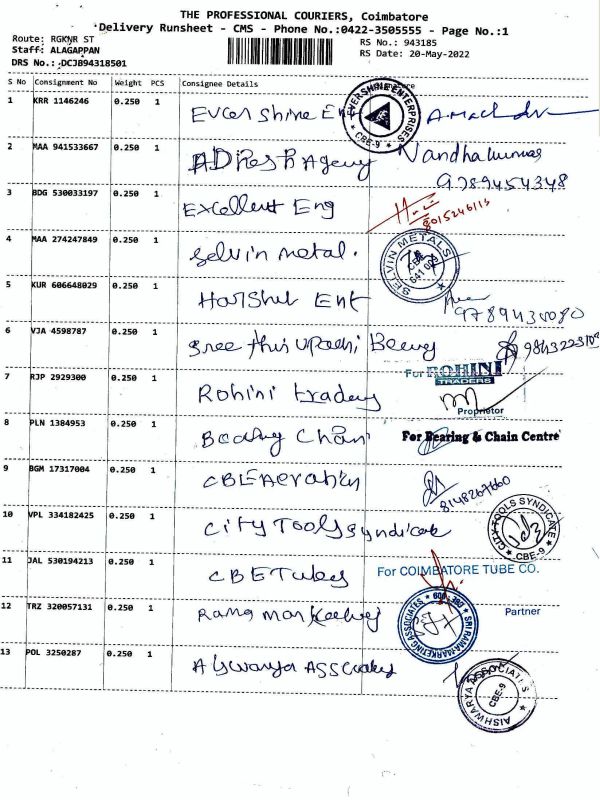 THE PROFESSIONAL COURIERS, Coimbatore
Delivery Runsheet - CMS - Phone No.:0422-3505555 - Page No.:1
Route: RGKNR ST
RS No.: 943185
Staff: ALAGAPPAN
RS Date: 20-May-2022
DRS No.: DCJB94318501
S No Consignment No Weight PCS Consignee Details
1 KRR 1146246 0.250 1 Ever Shine Ent
EVERSHINE ENTERPRISES * CBE-9 *
2 MAA 941533667 0.250 1 Agency Nandhakumar
9789454348
3 BDG 530033197 0.250 1 Excellent Eng
8015246113
4 MAA 274247849 0.250 1 Selvin metal.
SELVIN METALS CBE 641 009
5 KUR 606648029 0.250 1 Harshit Ent
6 VJA 4598787 0.250 1 Sree
7 RJP 2929300 0.250 1 Rohini traders
For ROHINI TRADERS
Proprietor
8 PLN 1384953 0.250 1 Bearing Chain
For Bearing & Chain Centre
9 BGM 17317004 0.250 1 CBE
8148267660
10 VPL 334182425 0.250 1 City Tools Syndicate
CITY TOOLS SYNDICATE * CBE-9 *
11 JAL 530194213 0.250 1 CBE Tubes
For COIMBATORE TUBE CO.
Partner
12 TRZ 320057131 0.250 1 Rama Marketing
SRI RAMA MARKETING ASSOCIATES
13 POL 3250287 0.250 1 Aiswarya Associates
AISHWARYA ASSOCIATES * CBE-9 *